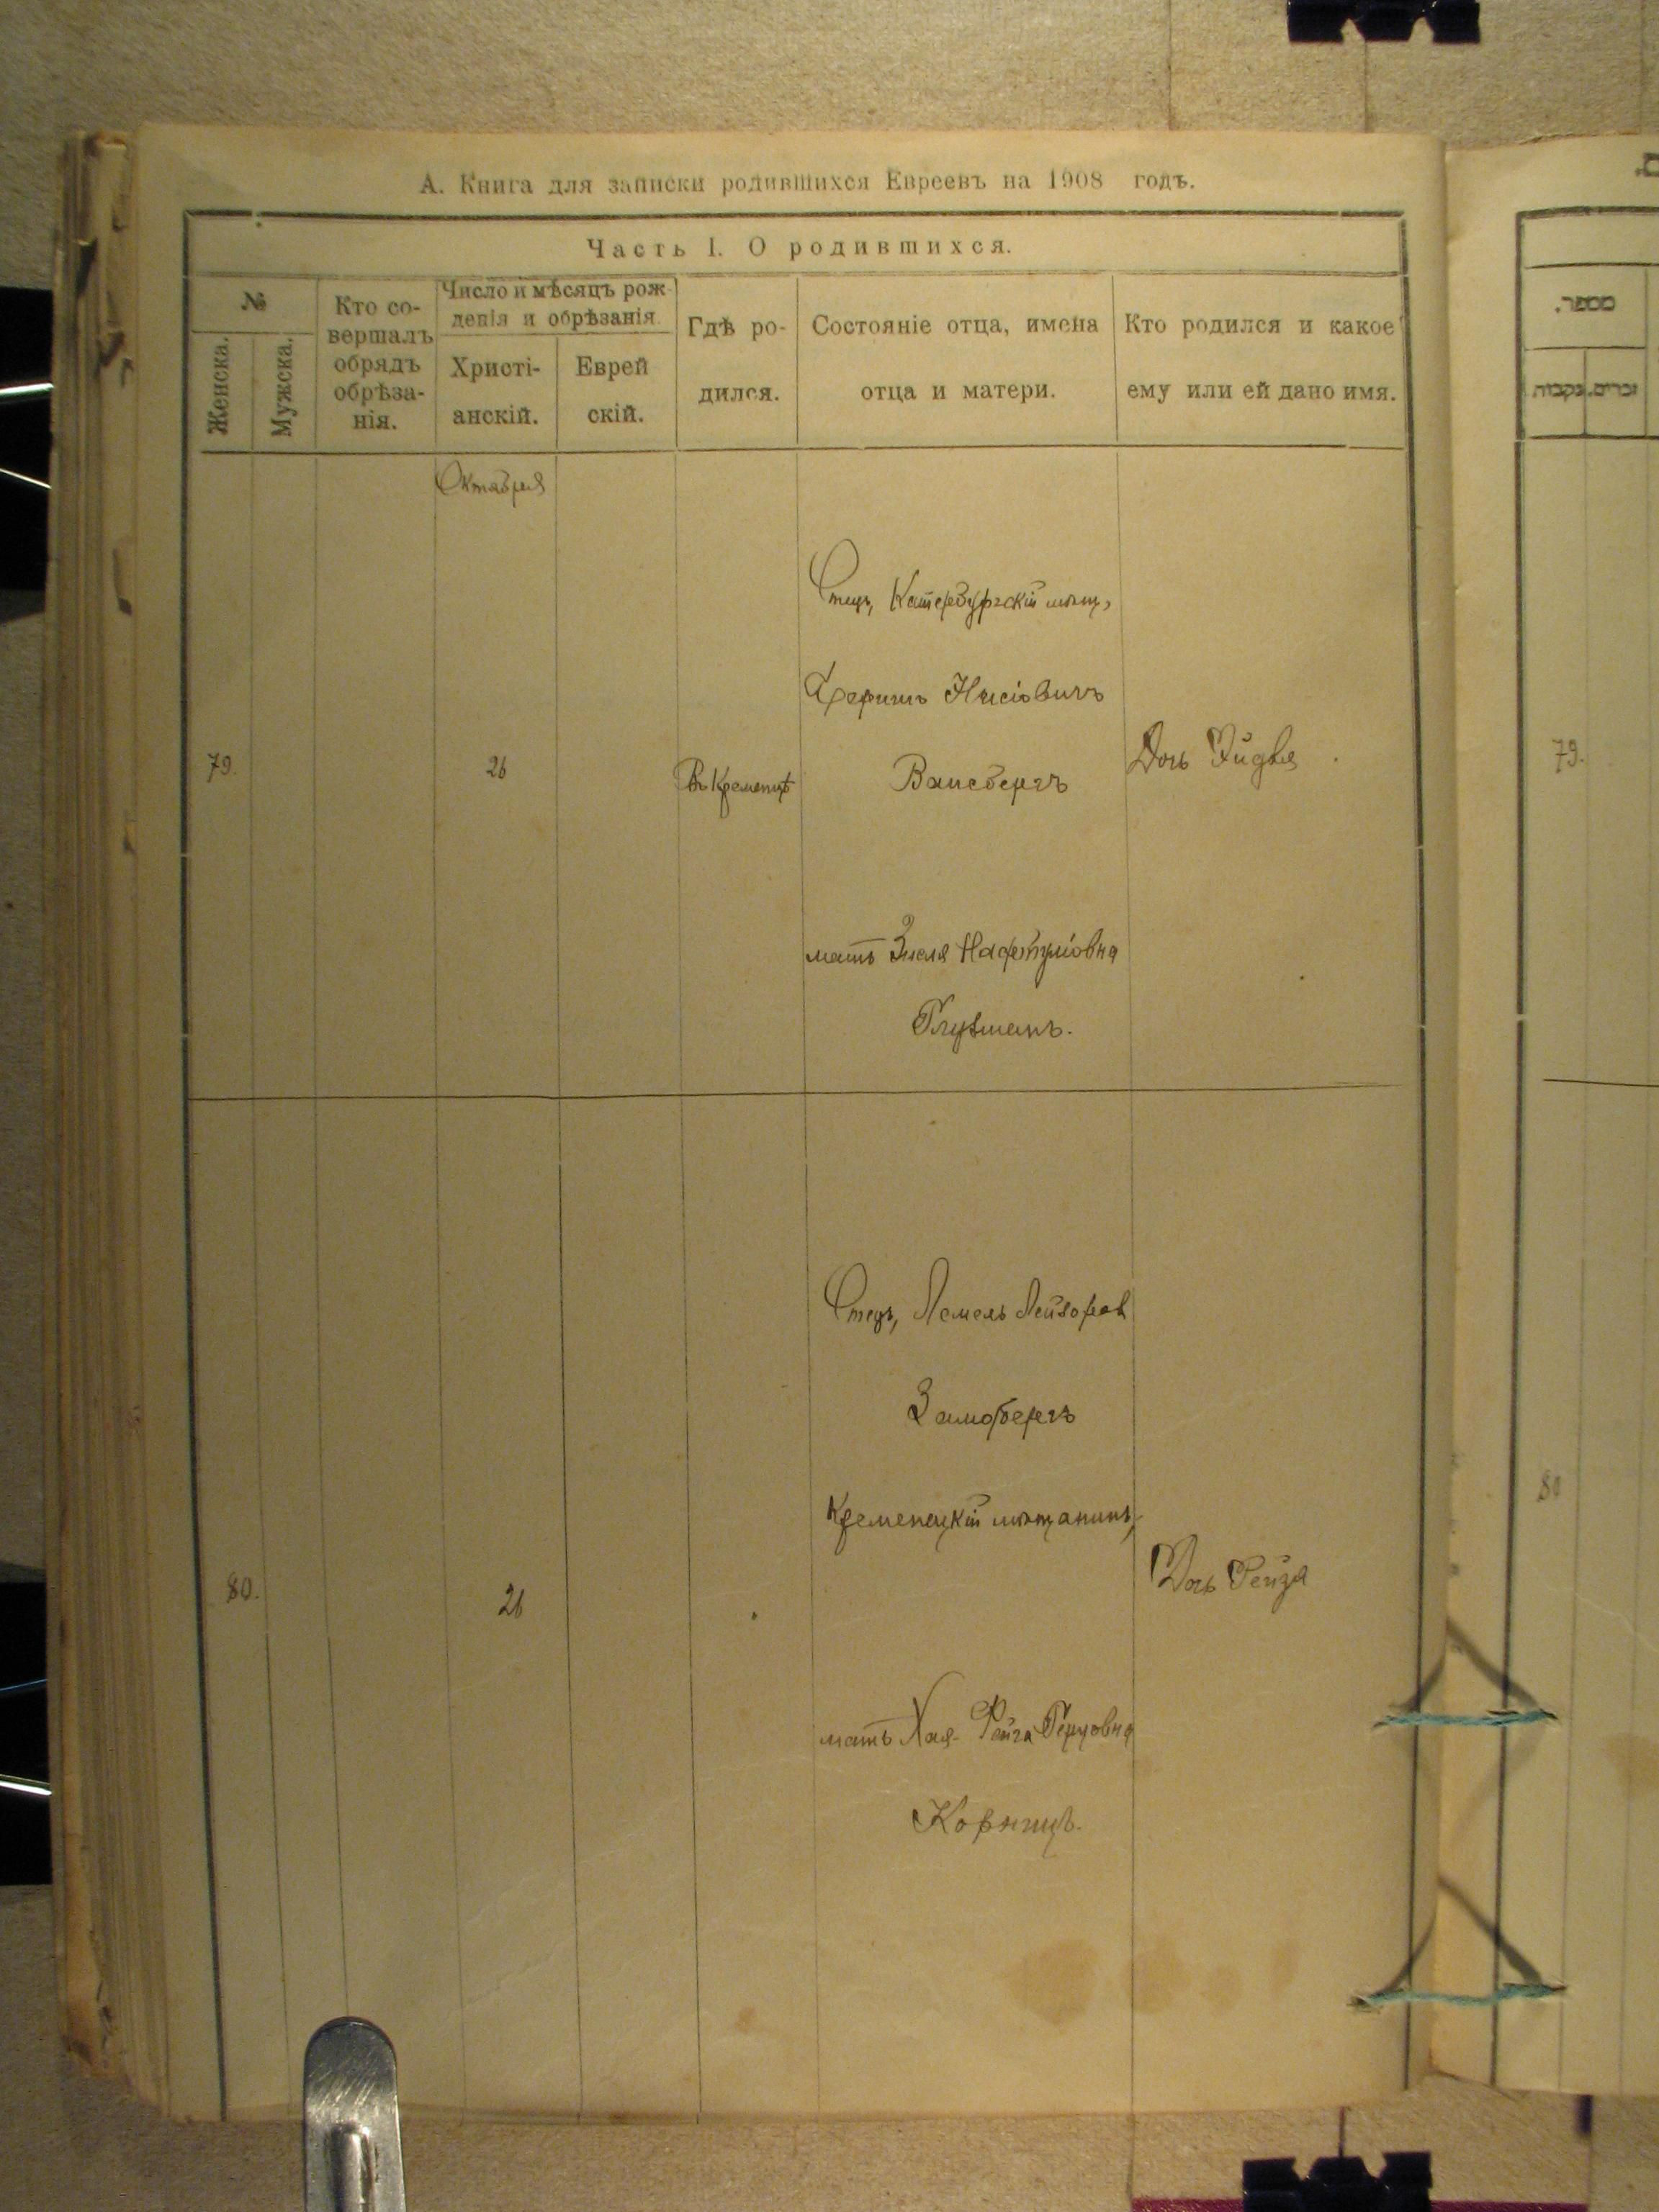 А. Книга для записки родившихся Евреевъ на 1908 годъ.
Часть I. О родившихся.
№
Женска.
Мужска.
Кто со-
вершалъ
обрядъ
обрѣза-
нія.
Число и мѣсяцъ рож-
денія и обрѣзанія.
Христі-
анскій.
Еврей
скій.
Гдѣ ро-
дился.
Состояніе отца, имена
отца и матери.
Кто родился и какое
ему или ей дано имя.
Октября
79.
26
Въ Кременцѣ
Отецъ, Катербургскій мѣщ,
Нисіовичъ
Ваисбергъ
мать Зисля Нафтуліовна
Глузманъ.
Дочь
80.
26
Отецъ, Лемель Лейзоров
Замобергъ
Кременецкій мѣщанинъ,
мать Хая- Рейза Герцовна
Корницъ.
Дочь Рейзя
מספר.
זכרים.
נקבות
79.
80